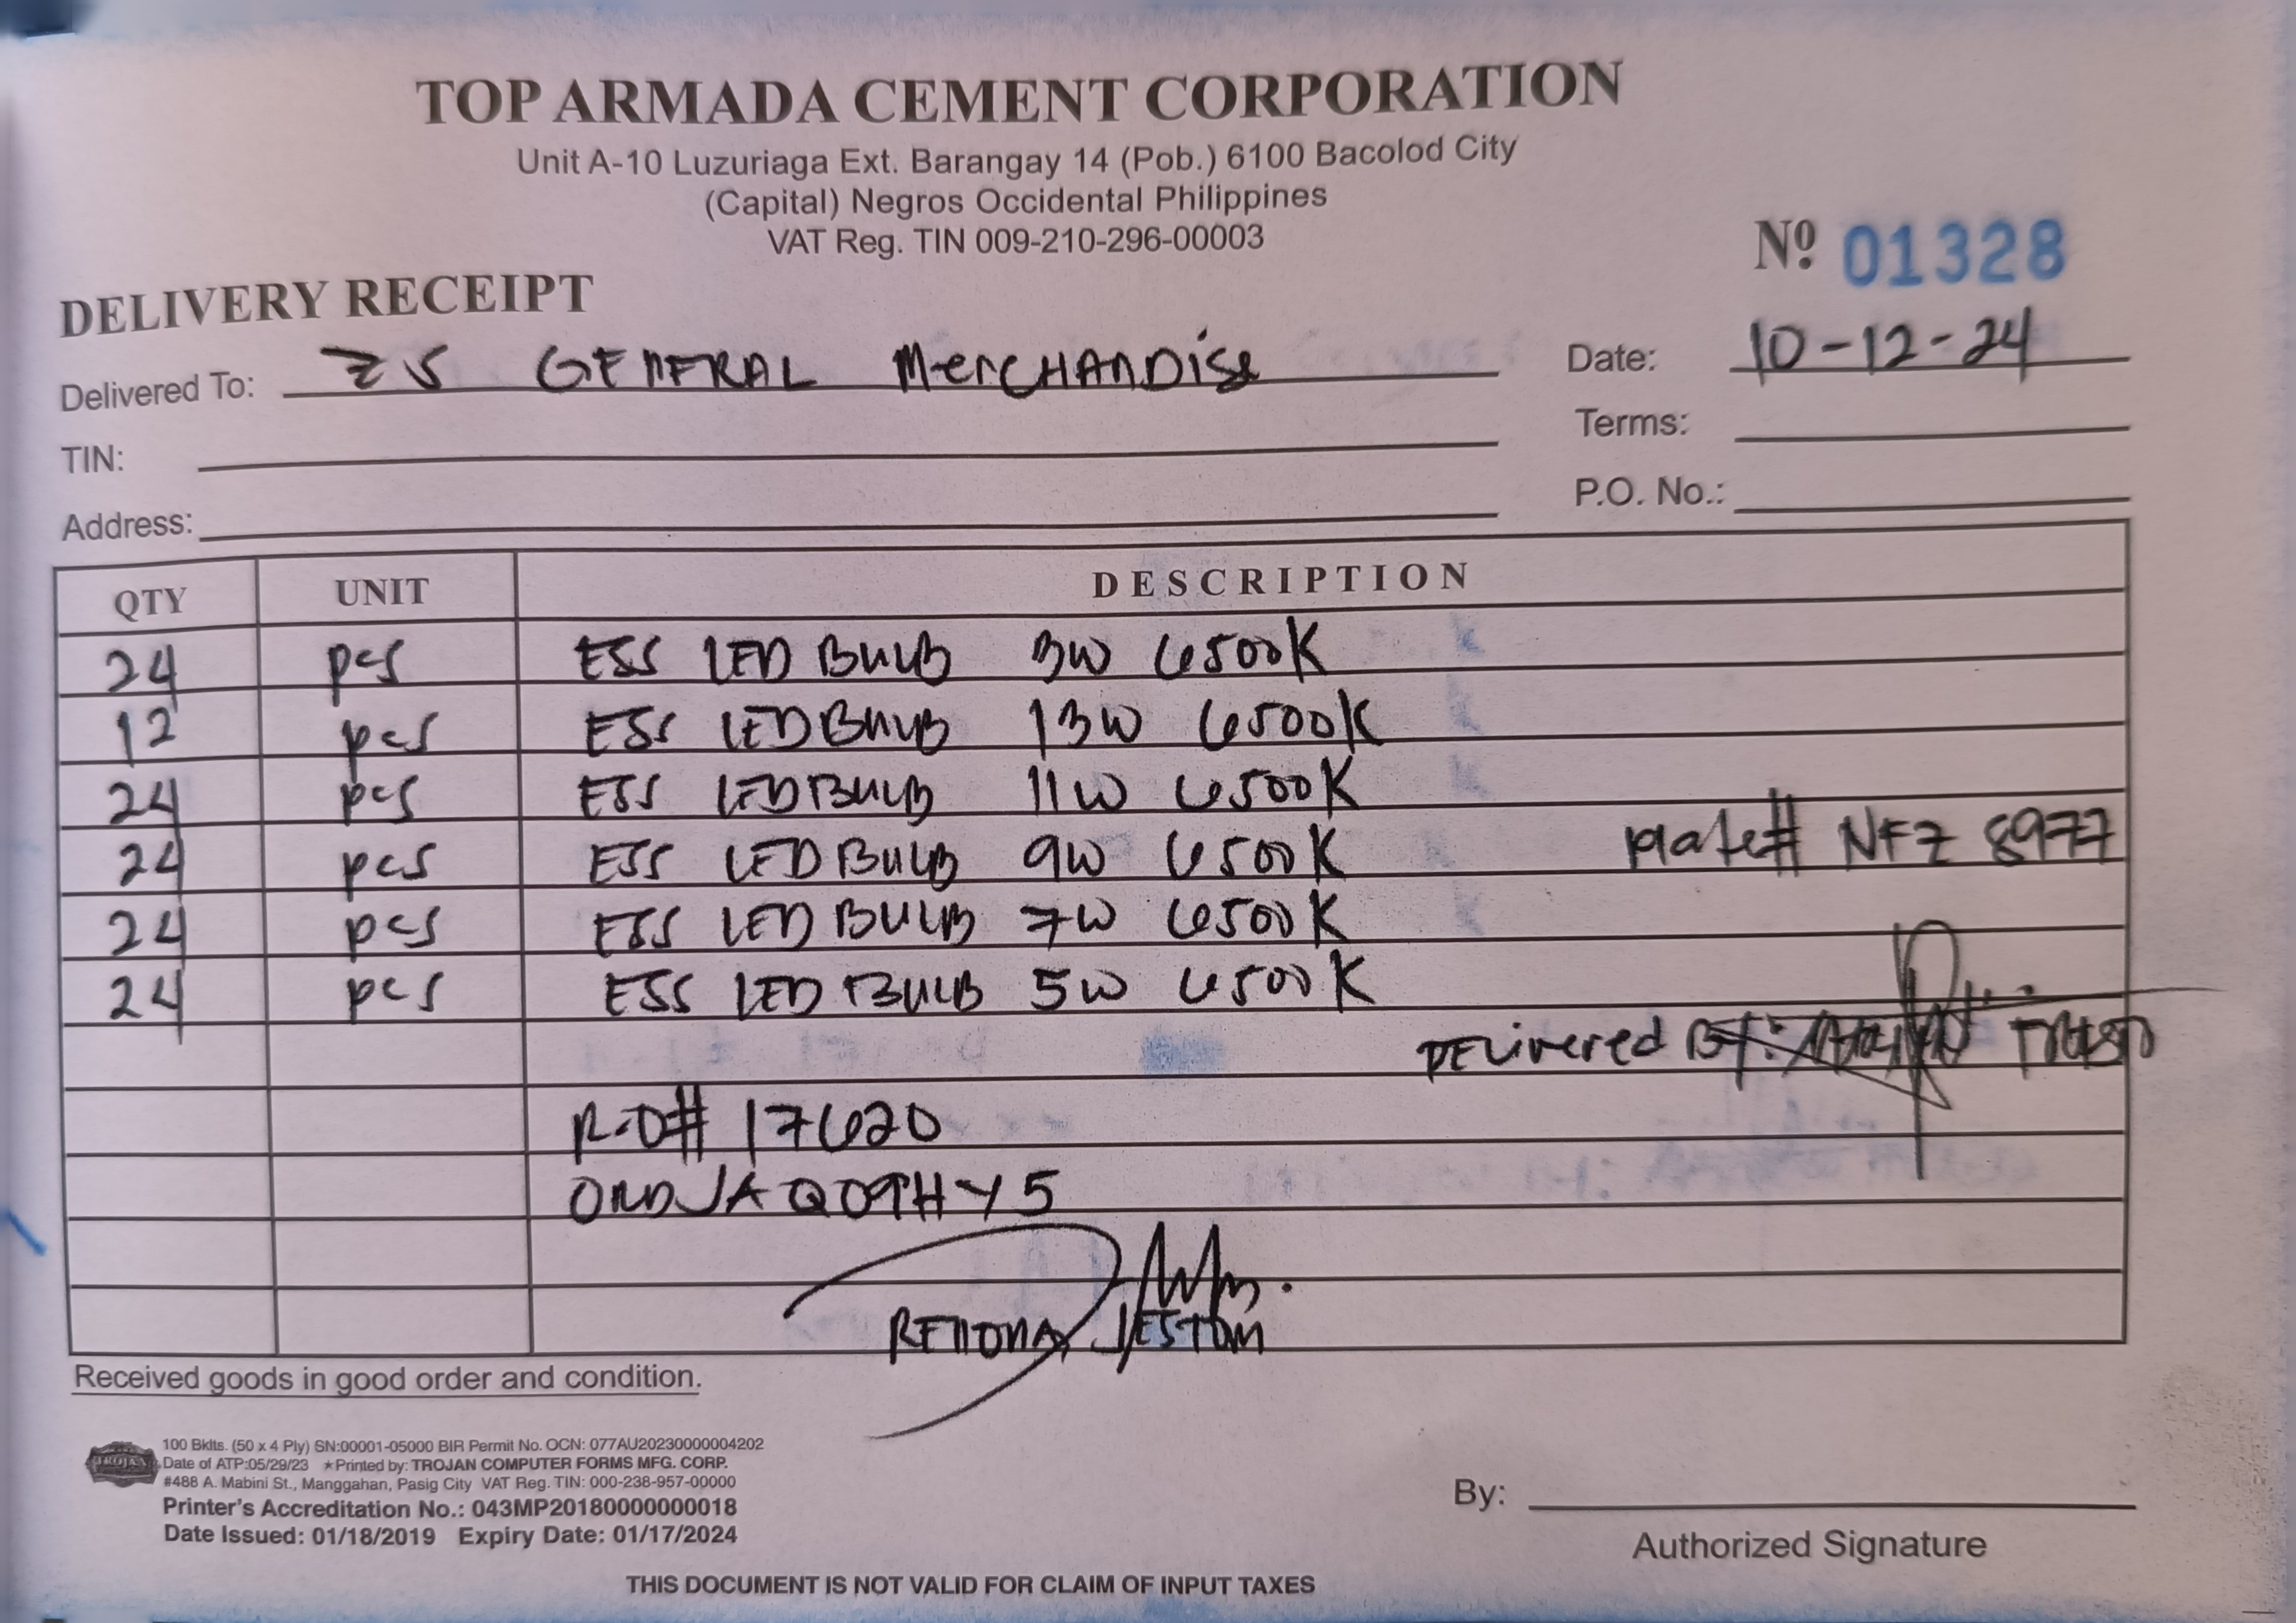 TOP ARMADA CEMENT CORPORATION
Unit A-10 Luzuriaga Ext. Barangay 14 (Pob.) 6100 Bacolod City
(Capital) Negros Occidental Philippines
VAT Reg. TIN 009-210-296-00003
Nº 01328
DELIVERY RECEIPT
Delivered To: ZS GENERAL MERCHANDISE
Date: 10-12-24
TIN:
Terms:
Address:
P.O. No.:
QTY UNIT DESCRIPTION
24 pcs ESS LED BULB 3W 6500K
12 pcs ESS LED BULB 13W 6500K
24 pcs ESS LED BULB 11W 6500K
24 pcs ESS LED BULB 9W 6500K
plate# NFZ 8977
24 pcs ESS LED BULB 7W 6500K
24 pcs ESS LED BULB 5W 6500K
DELIVERED BY:
R.O# 17620
ORDJAQ09HY5
JESTOM
Received goods in good order and condition.
TROJAN
100 Bklts. (50 x 4 Ply) SN:00001-05000 BIR Permit No. OCN: 077AU20230000004202
Date of ATP:05/29/23 ★Printed by: TROJAN COMPUTER FORMS MFG. CORP.
#488 A. Mabini St., Manggahan, Pasig City VAT Reg. TIN: 000-238-957-00000
Printer's Accreditation No.: 043MP20180000000018
Date Issued: 01/18/2019 Expiry Date: 01/17/2024
By:
Authorized Signature
THIS DOCUMENT IS NOT VALID FOR CLAIM OF INPUT TAXES